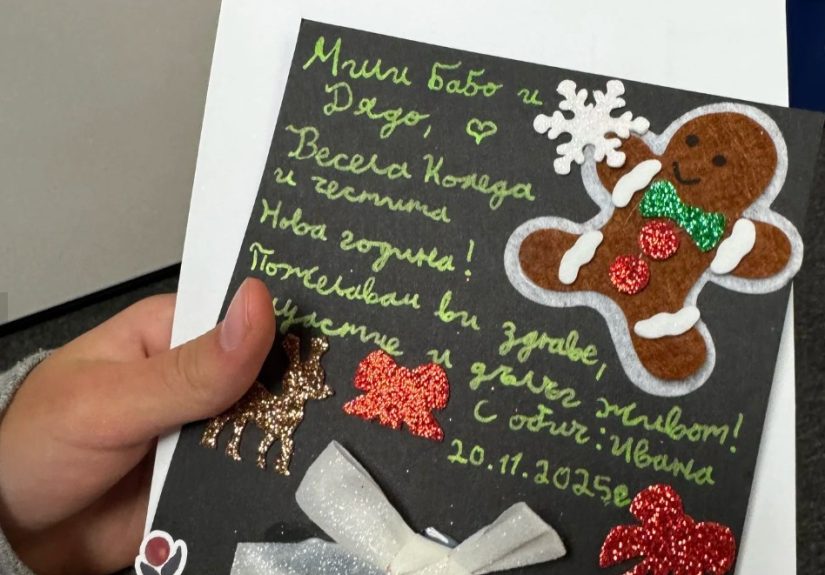 Мили Бабо и
Дядо, ♡
Весела Коледа
и честита
Нова година!
Пожелавам ви здраве,
щастие и дълъг живот!
С обич: Ивана
20.11.2025г